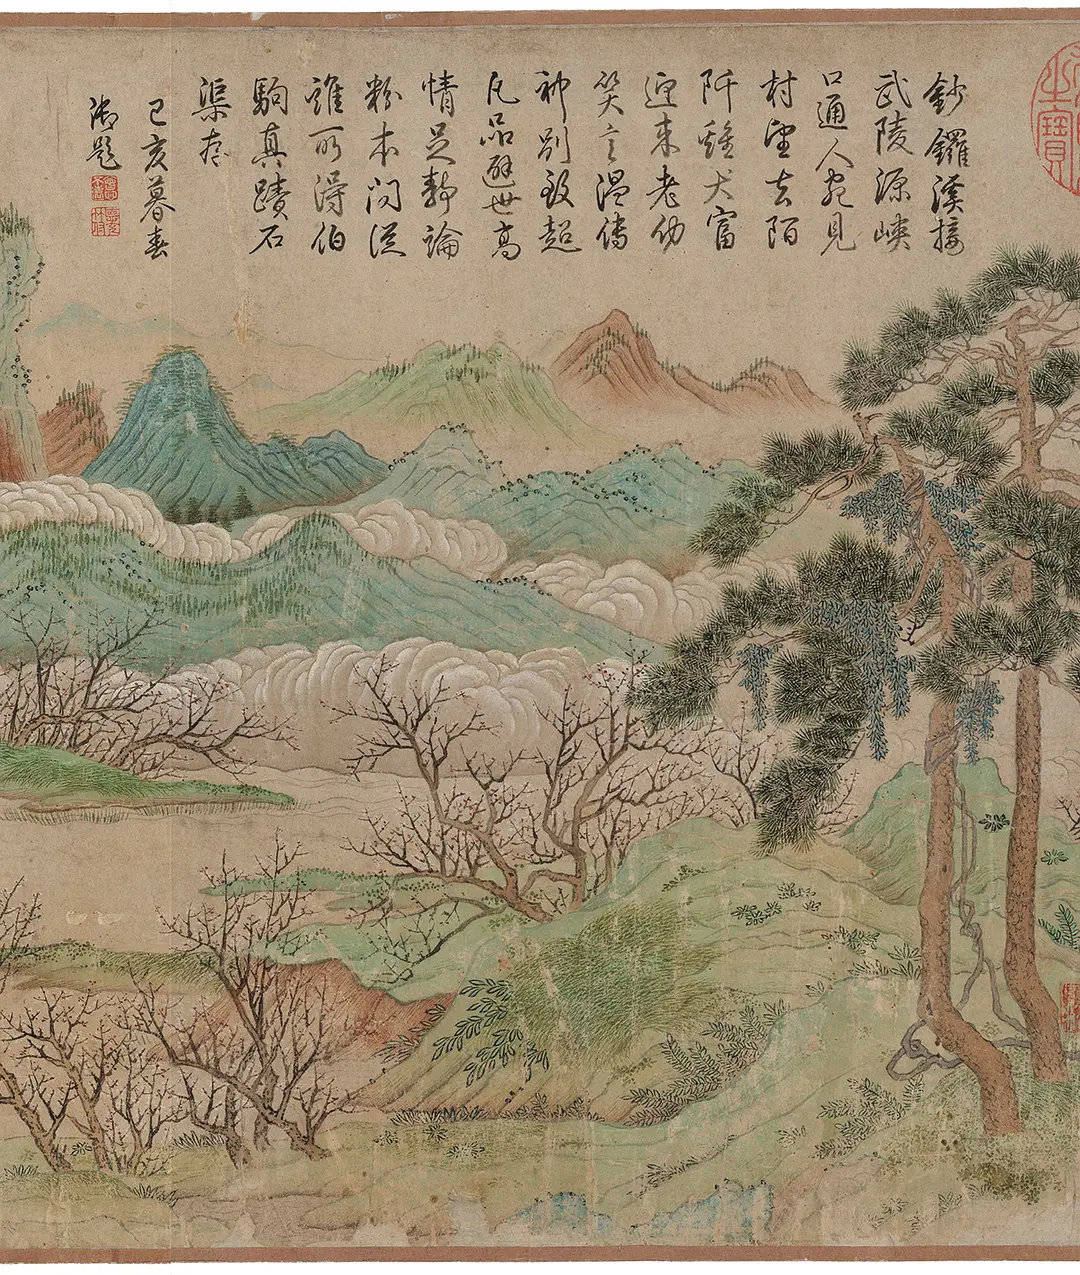 鈔鑼溪接
武陵源峽
口通人宛見
村望去陌
阡雞犬富
迎来老幼
笑言温傳
神別致超
凡品避世高
情足静論
粉本問從
誰所得伯
駒真蹟石
渠存
己亥暮春
御題
之寶